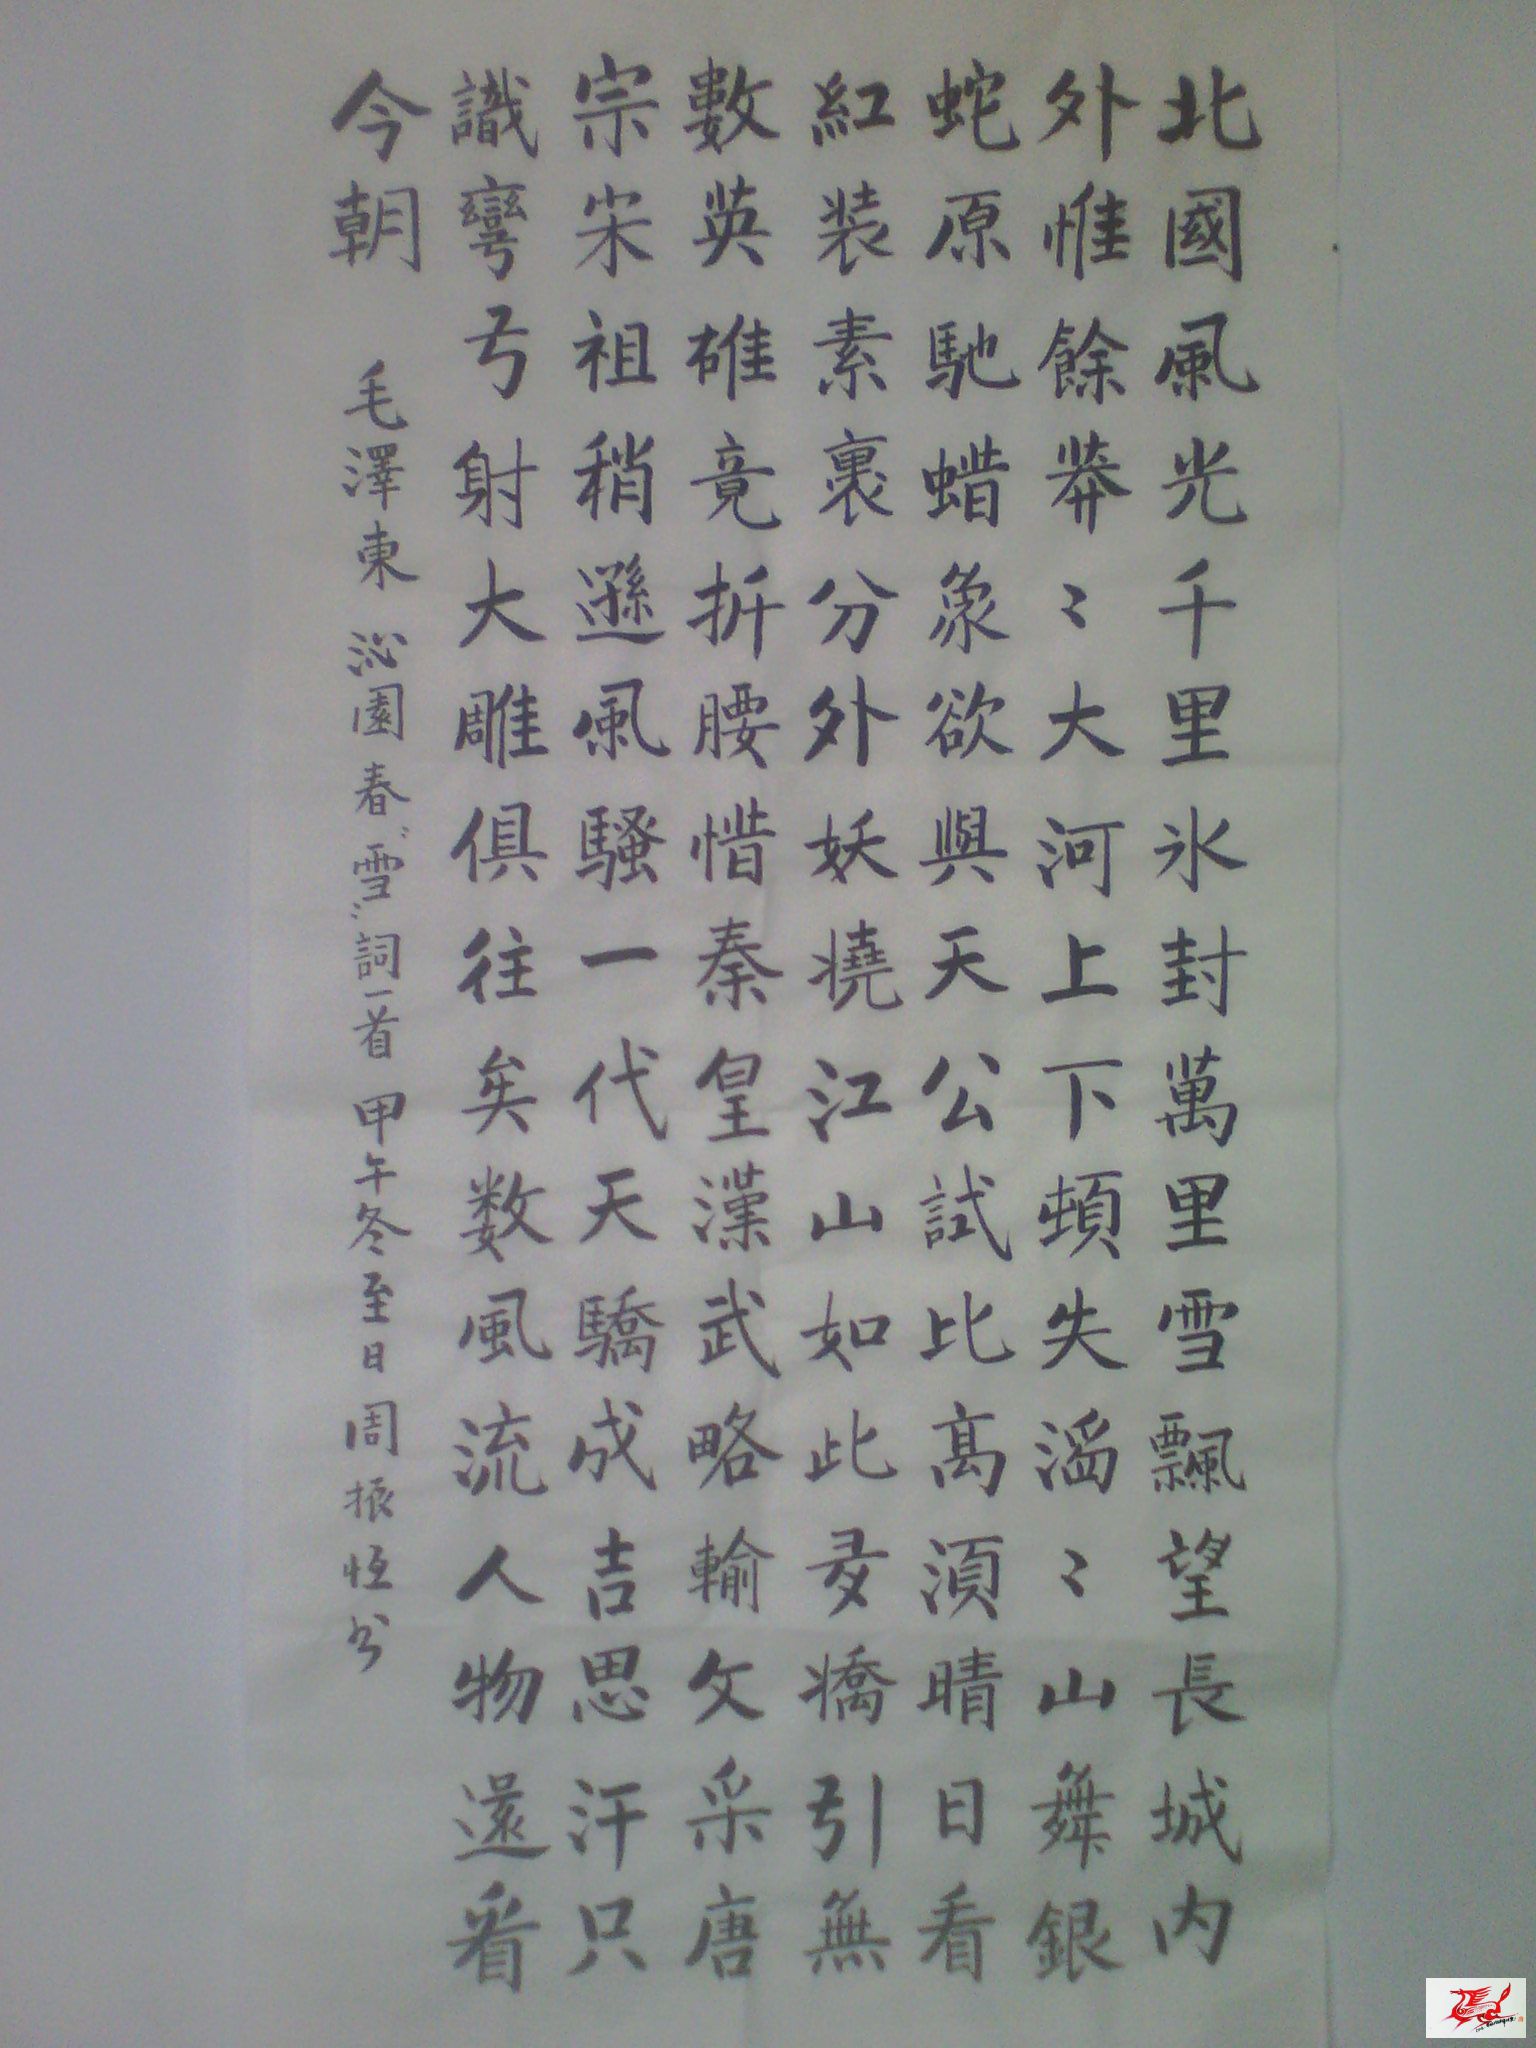 北國風光千里氷封萬里雪飄望長城内
外惟餘莽〻大河上下頓失滔〻山舞銀
蛇原馳蜡象欲與天公試比高須晴日看
紅装素裹分外妖嬈江山如此多嬌引無
數英雄竟折腰惜秦皇漢武略輸文采唐
宗宋祖稍遜風騷一代天驕成吉思汗只
識彎弓射大雕俱往矣数風流人物還看
今朝 毛澤東 沁園春"雪"詞一首 甲午冬至日 周振恒书